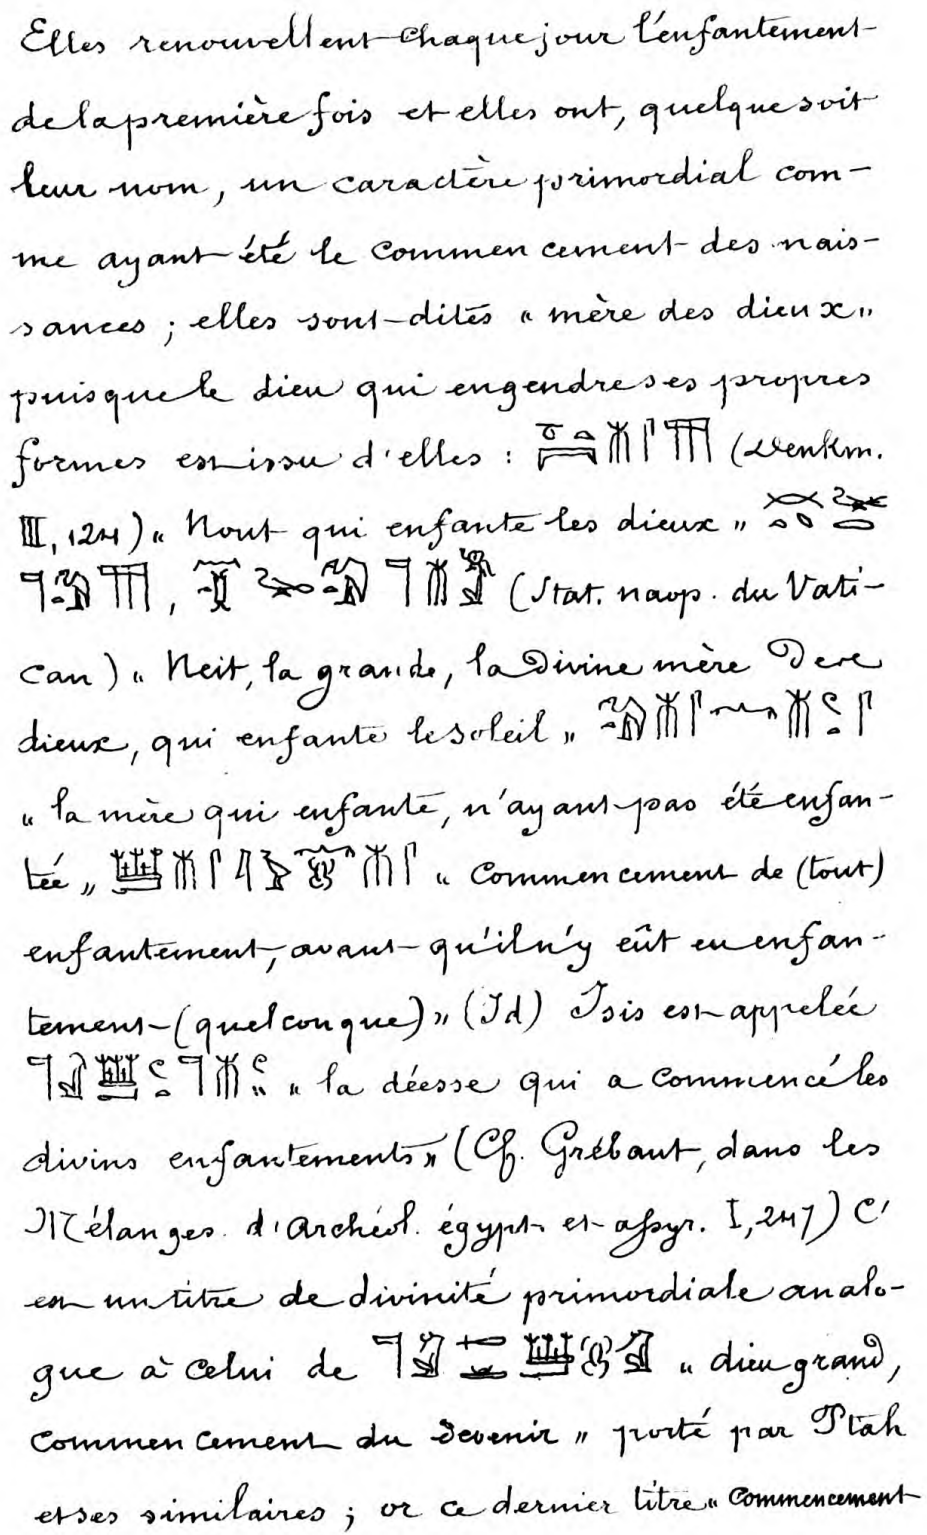 Elles renouvellent chaque jour l'enfantement
de la première fois et elles ont, quelque soit
leur nom, un caractère primordial com-
me ayant été le commencement des nais-
sances ; elles sont dites « mère des dieux »
puisque le dieu qui engendre ses propres
formes est issu d'elles : (Denkm.
III, 124) « Nout qui enfante les dieux »
, (Stat. naop. du Vati-
can) « Neit, la grande, la divine mère
dieux, qui enfante le soleil »
« la mère qui enfante, n'ayant pas été enfan-
tée » « commencement de (tout)
enfantement, avant qu'il n'y eût eu enfan-
tement (quelconque) » (Id) Isis est appelée
« la déesse qui a commencé les
divins enfantements » (Cf. Grébaut, dans les
Mélanges d'Archéol. égypt. et assyr. I, 247) C'
est un titre de divinité primordiale analo-
gue à celui de « dieu grand,
commencement du devenir » porté par Ptah
et ses similaires ; or ce dernier titre « commencement